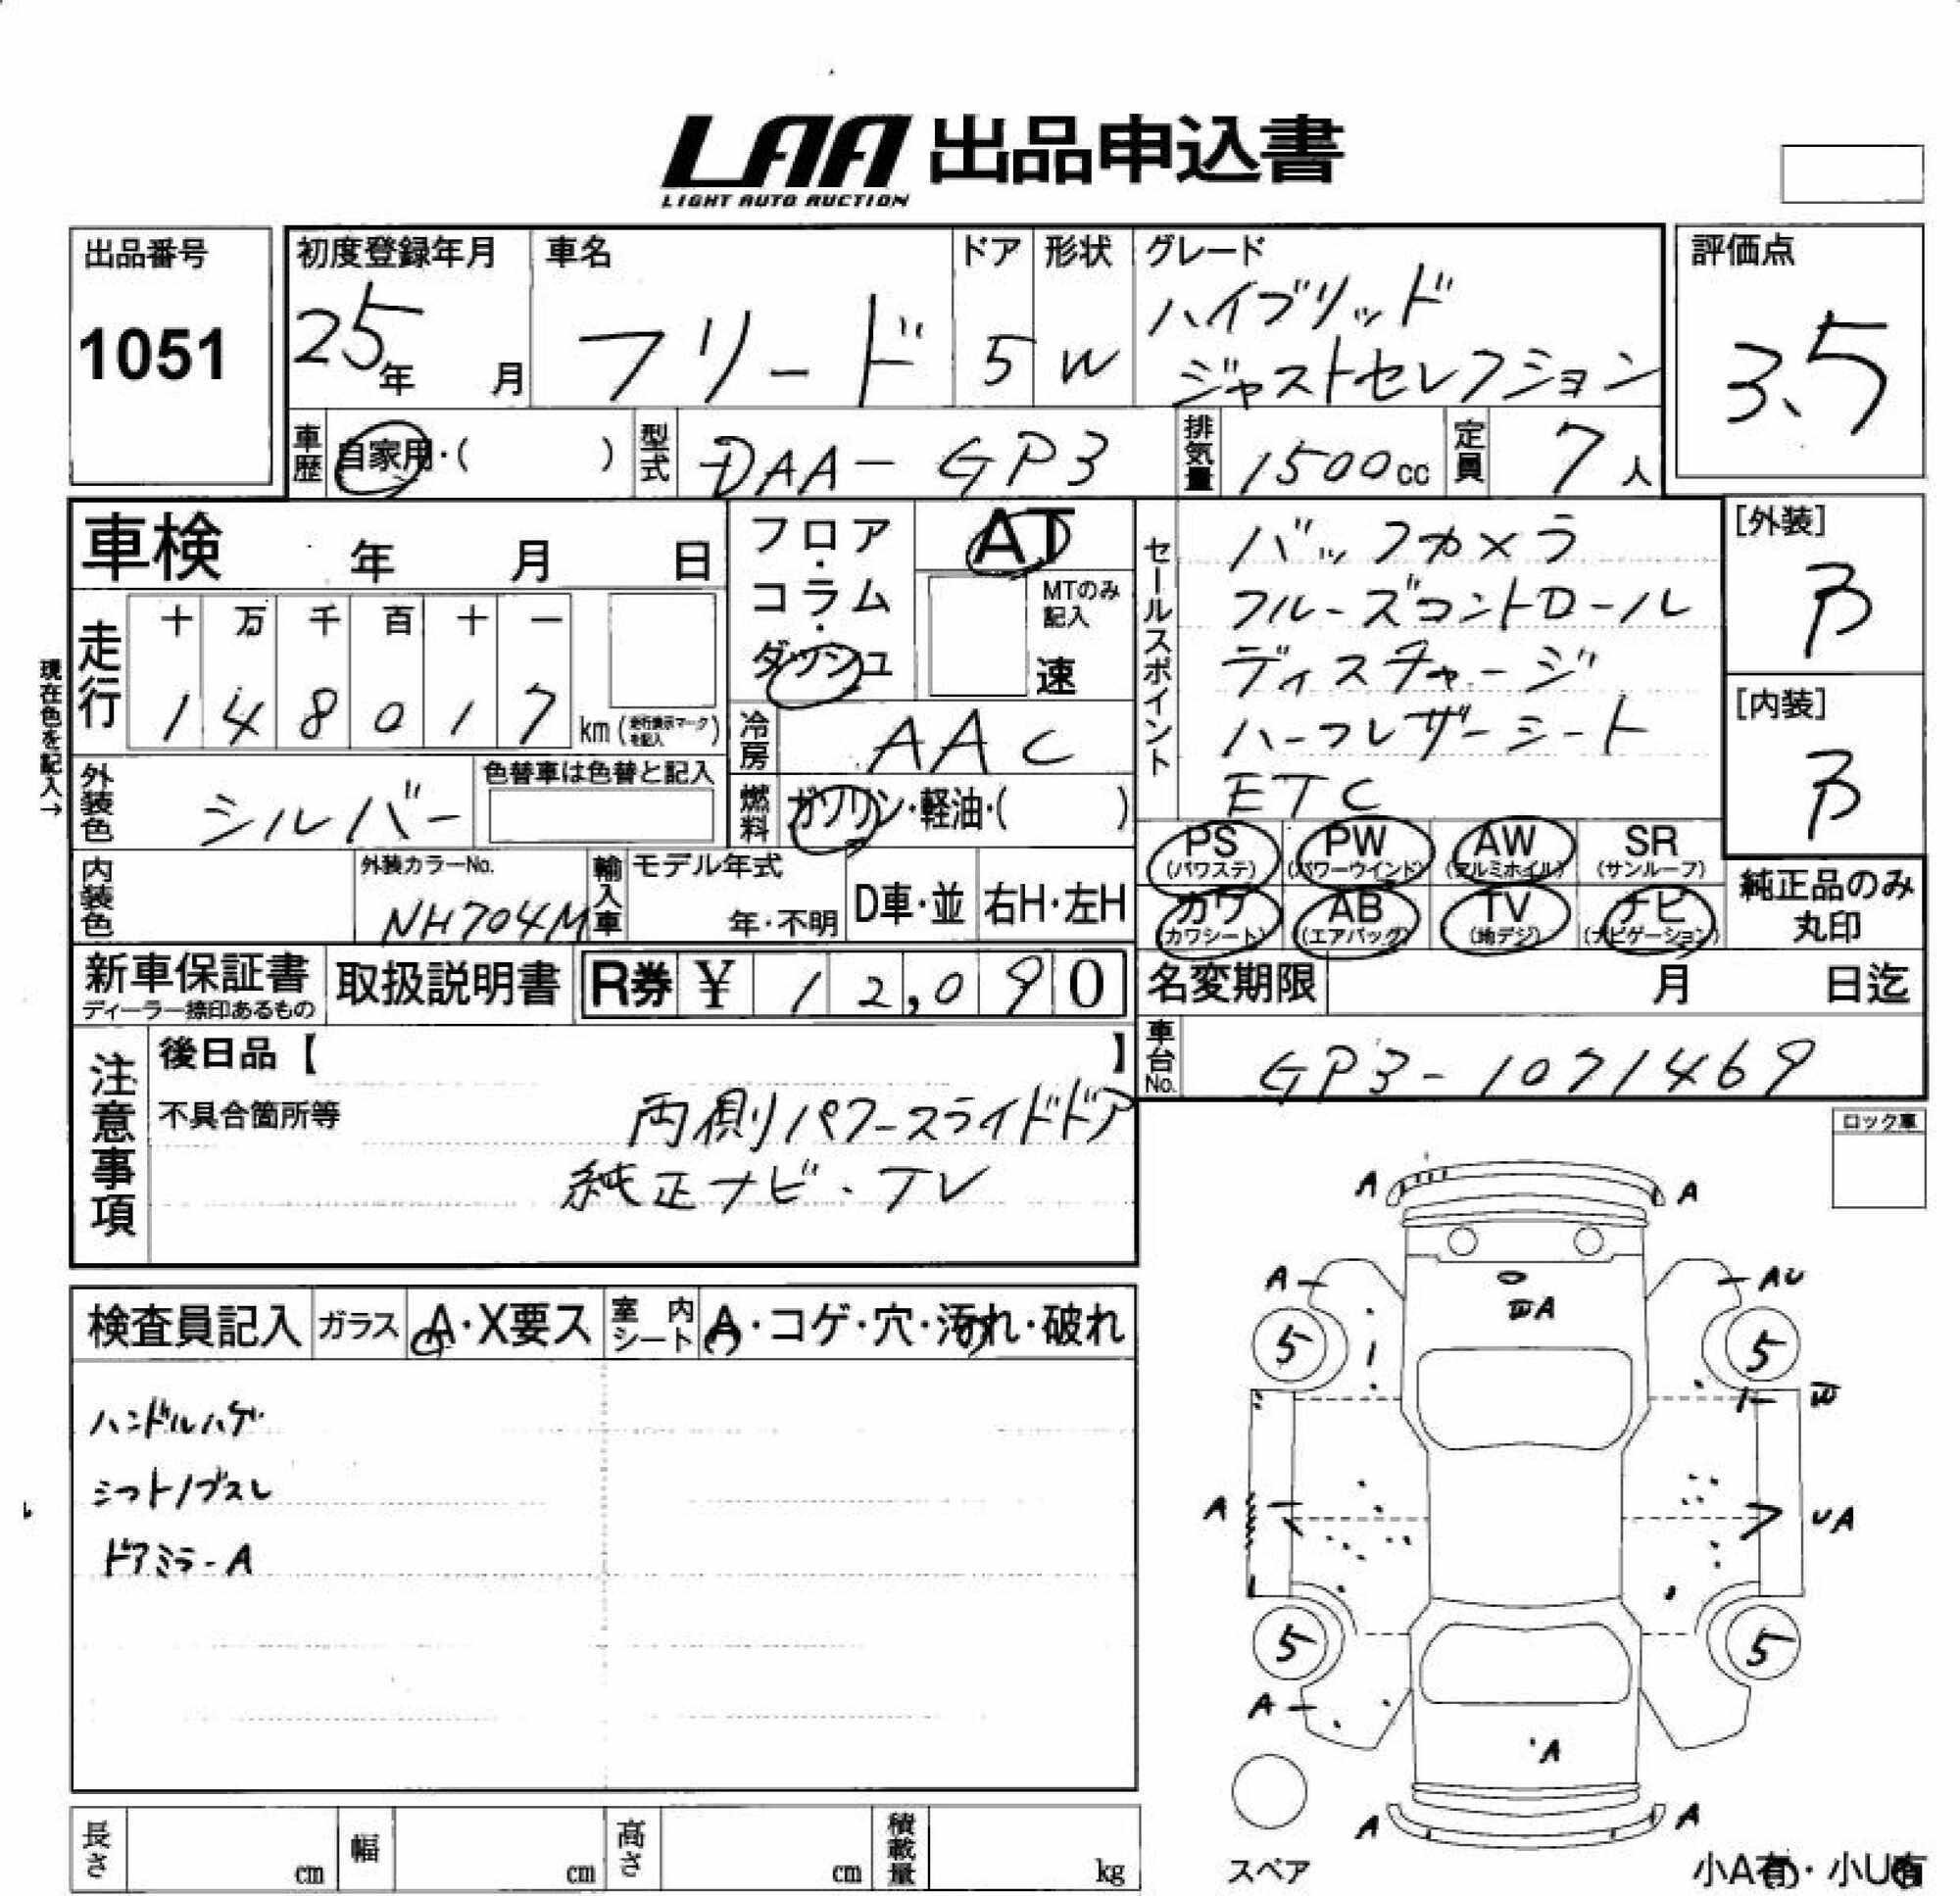 LAA 出品申込書
LIGHT AUTO AUCTION
出品番号
1051
初度登録年月
25年 月
車名
フリード
ドア
5
形状
W
グレード
ハイブリッド
ジャストセレクション
評価点
3.5
車歴 自家用・( )
型式 DAA-GP3
排気量 1500cc
定員 7人
車検 年 月 日
フロア・コラム・ダッシュ
AT
MTのみ記入
速
セールスポイント
バックカメラ
クルーズコントロール
ディスチャージ
ハーフレザーシート
ETC
[外装]
B
[内装]
B
現在色を記入→
走行
十 万 千 百 十 一
1 4 8 0 1 7 km (走行表示マークを記入)
冷房 AAC
外装色 シルバー
色替車は色替と記入
燃料 ガソリン・軽油・( )
PS (パワステ)
PW (パワーウインド)
AW (アルミホイル)
SR (サンルーフ)
カワ (カワシート)
AB (エアバッグ)
TV (地デジ)
ナビ (ナビゲーション)
純正品のみ
丸印
内装色
外装カラーNo.
NH704M
輸入車
モデル年式
年・不明
D車・並
右H・左H
新車保証書
ディーラー捺印あるもの
取扱説明書
R券 ¥ 12,090
名変期限 月 日迄
車台No. GP3-1071469
注意事項
後日品【 】
不具合箇所等
両側パワースライドドア
純正ナビ・TV
ロック車
検査員記入
ガラス A・X要ス
室内シート A・コゲ・穴・汚れ・破れ
ハンドルハゲ
シフトノブスレ
ドアミラーA
A A
A AU
A
5 5
A UA
5 5
A
A
A A
スペア
小A有・小U有
長さ cm
幅 cm
高さ cm
積載量 kg